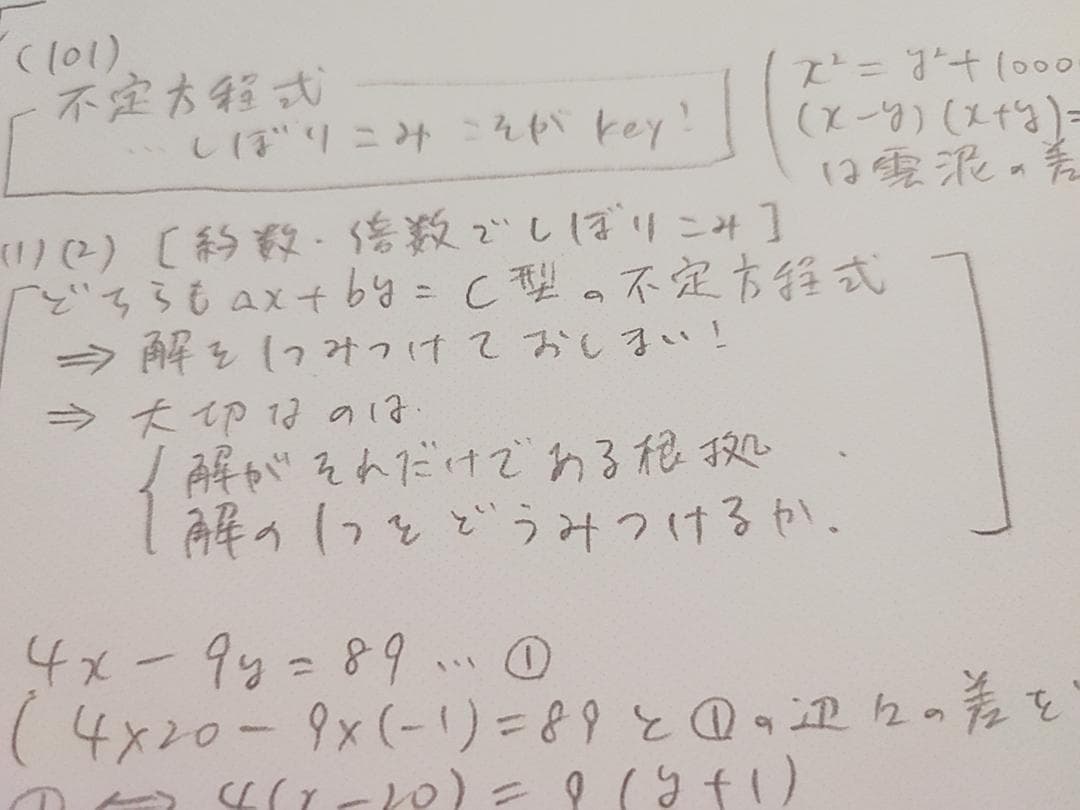 (101)
不定方程式
… しぼりこみこそが key!
x² = y² + 1000
(x-y)(x+y)=
は雲泥の差
(1)(2) [約数・倍数でしぼりこみ]
どちらも ax+by=c型の不定方程式
⇒ 解を1つみつけておしまい!
⇒ 大切なのは.
解がそれだけである根拠
解の1つをどうみつけるか.
4x-9y=89 … ①
( 4×20-9×(-1)=89 と ①の辺々の差を
① ⇔ 4(x-20) = 9(y+1)